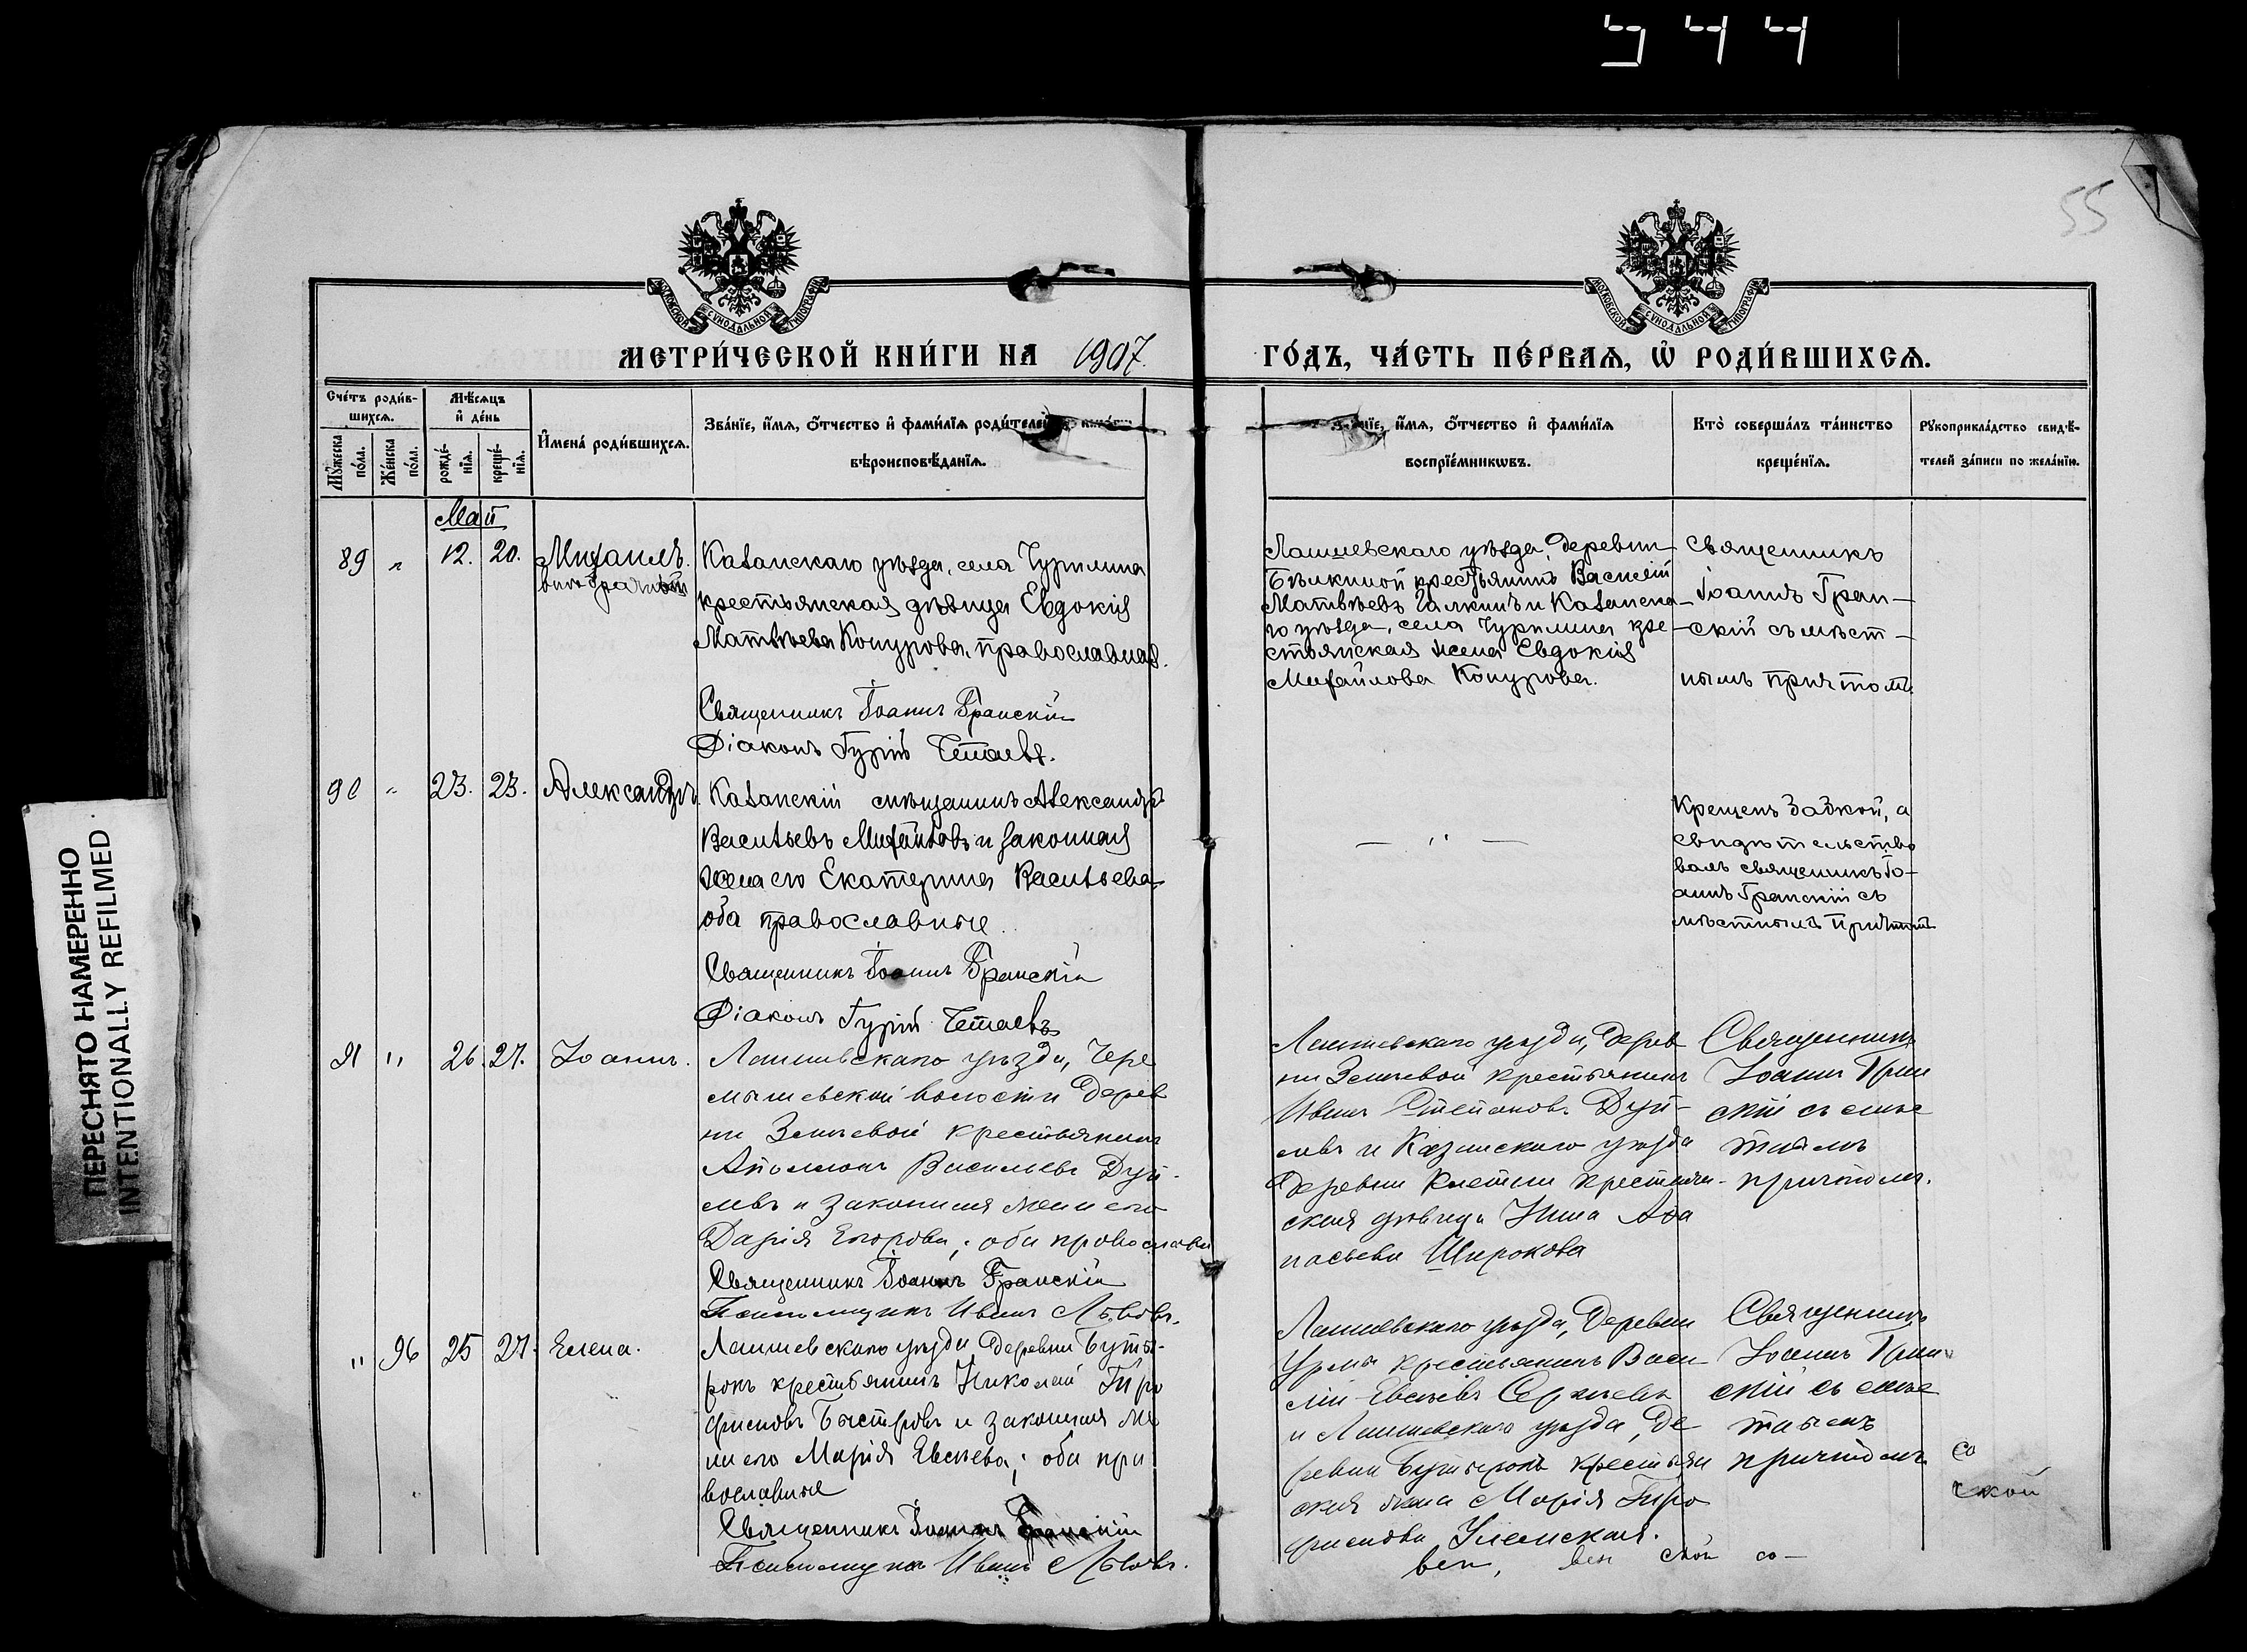 944
55
МОСКОВСКОЙ СѴНОДАЛЬНОЙ ТИПОГРАФІИ
МОСКОВСКОЙ СѴНОДАЛЬНОЙ ТИПОГРАФІИ
МЕТРИ́ЧЕСКОЙ КНИ́ГИ НА 1907. ГО́ДЪ, ЧА́СТЬ ПЕ́РВАЯ, Ѡ РОДИ́ВШИХСЯ.
Сче́тъ роди́в-
шихся.
Му́жеска по́ла.
Же́нска по́ла.
Мѣ́сяцъ
и де́нь
рожде́-
нїя.
креще́-
нїя.
Имена́ роди́вшихся.
Зва́нїе, и́мя, о́тчество и фами́лїя роди́телей
вѣроисповѣ́данїя.
и́мя, о́тчество и фами́лїя
воспрїе́мникѡвъ.
Кто̀ соверша́лъ та́инство
креще́нїя.
Рукоприкла́дство свидѣ́-
телей за́писи по жела́нїю.
Май
89 " 12. 20. Михаилъ.
Казанскаго уѣзда, села Чурилина
крестьянская дѣвица Евдокія
Матвѣева Кокурова, православная.
Священникъ Іоаннъ Гранскій
Діаконъ Гурій
Лаишевскаго уѣзда, деревни
Бѣлкиной крестьянинъ Василій
Матвѣевъ Галкинъ и Казанска-
го уѣзда, села Чурилина кре-
стьянская жена Евдокія
Михайлова Кокурова.
Священникъ
Іоаннъ Гран-
скій съ мѣст-
нымъ причтомъ
90 " 23. 23. Александръ.
Казанскій мѣщанинъ Александръ
Васильевъ Михайловъ и законная
жена его Екатерина Васильева
оба православные.
Священникъ Іоаннъ Гранскій
Діаконъ Гурій
— " —
Крещенъ бабкой, а
свидѣтельство
валъ священникъ Іо-
аннъ Гранскій съ
мѣстнымъ причтомъ
91 " 26. 27. Іоаннъ.
Лаишевскаго уѣзда, Чере
мышевской волости дерев
ни Зимъевой крестьянинъ
Аполлонъ Васильевъ
и законная жена его
Дарія Егорова; оба православн
Священникъ Іоаннъ Гранскій
Псаломщикъ Иванъ Львовъ.
Лаишевскаго уѣзда, дерев
крестьянинъ
Иванъ Степановъ
и Казанскаго уѣзда
деревни Клетни крестьян-
ская дѣвица Анна Аѳа
насьева Широкова
Священникъ
Іоаннъ Гран
скій съ мѣс
тнымъ
причтомъ.
" 96 25 27. Елена.
Лаишевскаго уѣзда деревни Буты-
рокъ крестьянинъ Николай
Быстровъ и законная же
на его Марія Евсѣева; оба пра
вославные
Священникъ Іоаннъ Гранскій
Псаломщикъ Иванъ Львовъ.
Лаишевскаго уѣзда, деревни
Урмы крестьянинъ Васи
лій Евсѣевъ Сергѣевъ
и Лаишевскаго уѣзда, де
ревни Бутырокъ крестьян
ская жена Марія
Священникъ
Іоаннъ Гран
скій съ мѣс
тнымъ
причтомъ
ПЕРЕСНЯТО НАМЕРЕННО
INTENTIONALLY REFILMED